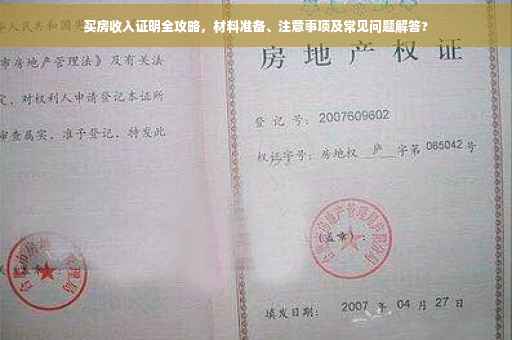 买房收入证明全攻略，材料准备、注意事项及常见问题解答？
人民共和国宪
市房地产管理法》及有关法
定，对权利人申请登记本证所
审查属实，准予登记，特发此
房地产权证
登记号：2007609602
权证字号：房地权 庐 字第 065042 号
(盖章)：
填发日期： 2007 年 04 月 27 日